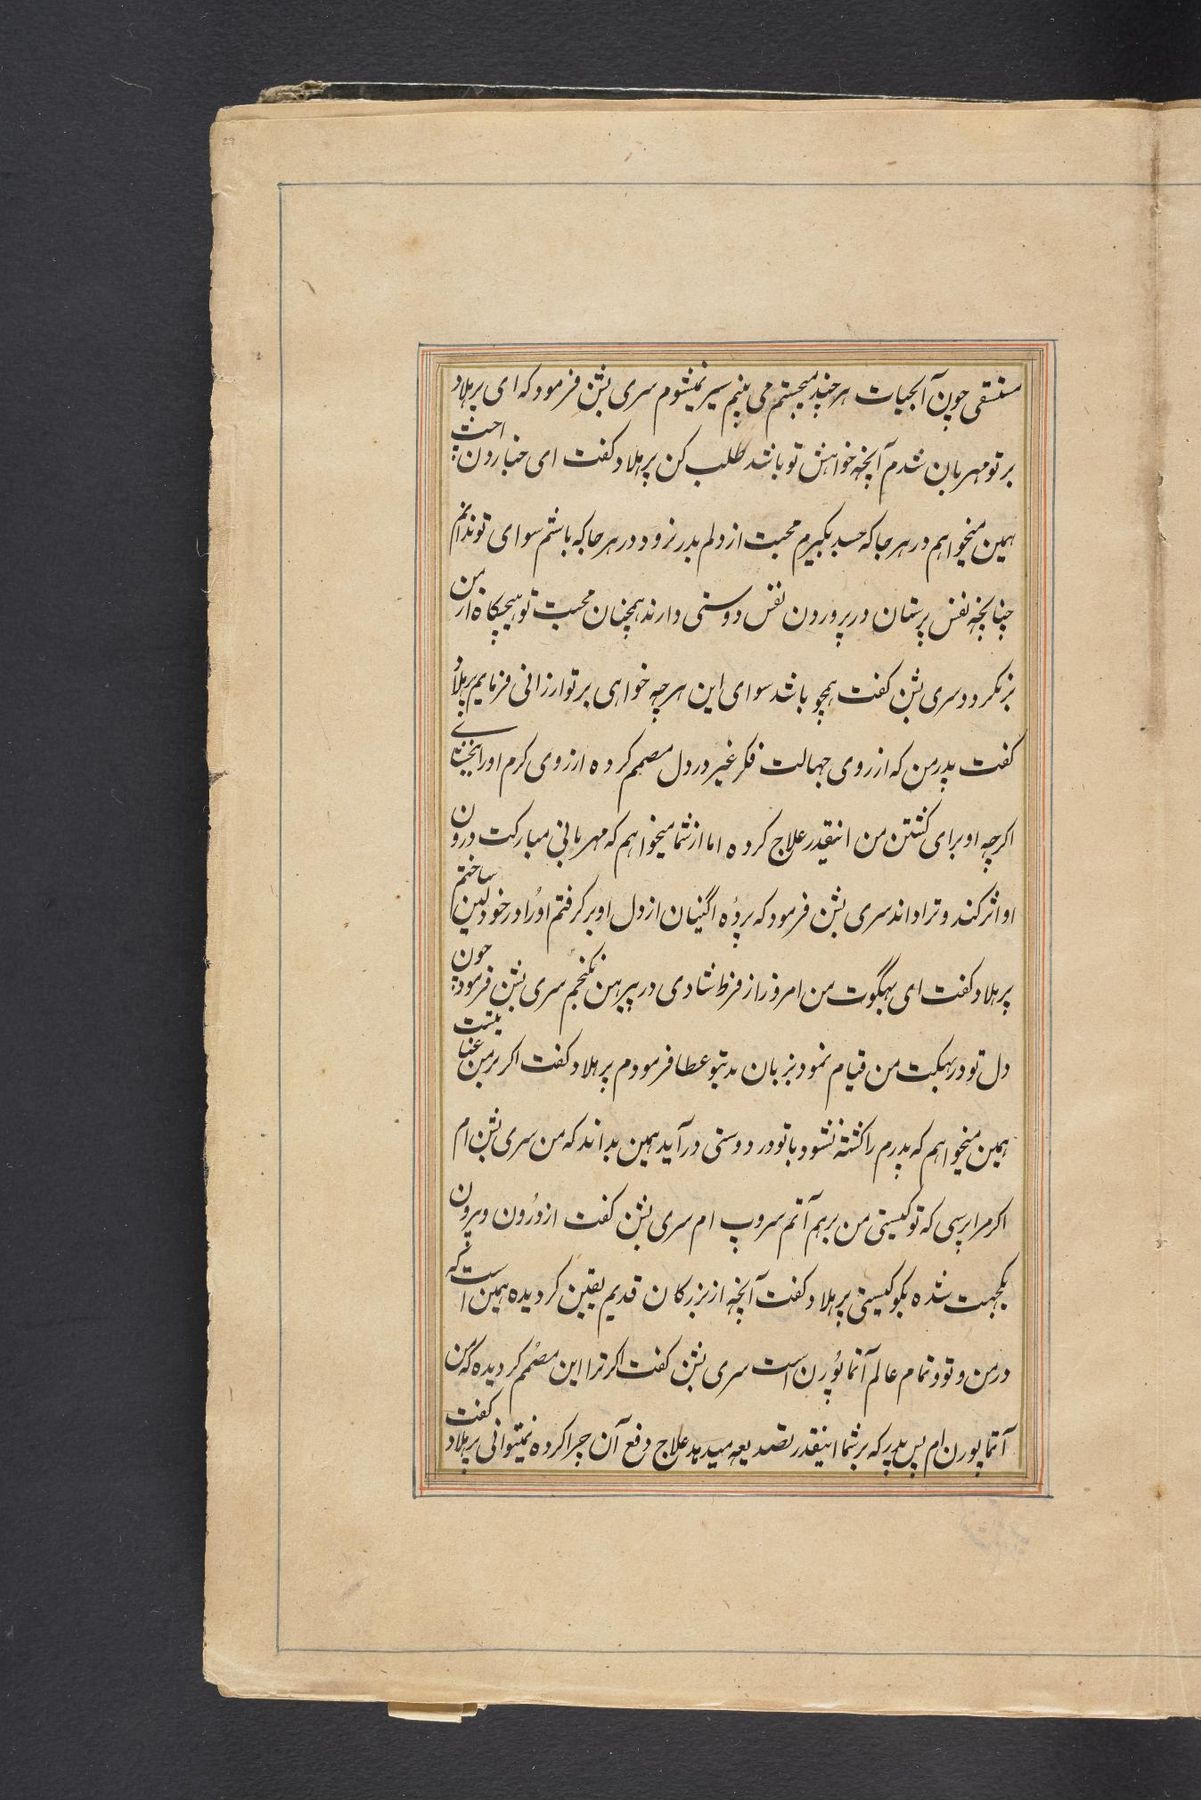 مستسقی چون آبحیات هر چند میجستم می بینم سیر نمیشوم سری بشن فرمود که ای پرهلاد
بر تو مهربان شدم آنچه خواهش تو باشد طلب کن پرهلاد کفت ای
همین میخواهم در هر جا که جسد بکیرم محبت از دلم بدر نرود و در هر جا که باشم سوای تو ندانم
چنانچه نفس پرستان در پروردن نفس دوستی دارند همچنان محبت تو هیچکاه از من
بر نکردد سری بشن کفت همچو باشد سوای این هر چه خواهی بر تو ارزانی فرمایم پرهلاد
کفت پدر من که از روی جهالت فکر غیر در دل مصمم کرده از روی کرم او را
اکرچه او برای کشتن من اینقدر علاج کرده اما از شما میخواهم که مهربانی مبارکت درون
او اثر کند و ترا داند سری بشن فرمود که پرده اگنیان از دل او بر کرفتم او را در خود لین ساختم
پرهلاد کفت ای بهگوت من امروز از فرط شادی در پیرهن نکنجم سری بشن فرمود چون
دل تو در بهکت من قیام نمود بزبان مد بتو عطا فرمودم پرهلاد کفت اکر بر من عنایتست
همین میخواهم که پدرم را کشته نشود با تو در دوستی در آید همین بداند که من سری بشن ام
اکر مرا پرسی که تو کیستی من برهم آتم سروپ ام سری بشن کفت از درون و بیرون
یکجهت شده بکو کیستی پرهلاد کفت آنچه از بزرکان قدیم یقین کردیده همین است که
در من و تو و تمام عالم آتما پورن است سری بشن کفت اکر ترا این مصمم کردیده که من
آتما پورن ام پس پدر که بر شما اینقدر تصدیعه میدهد علاج دفع آن چرا کرده نمیتوانی پرهلاد کفت